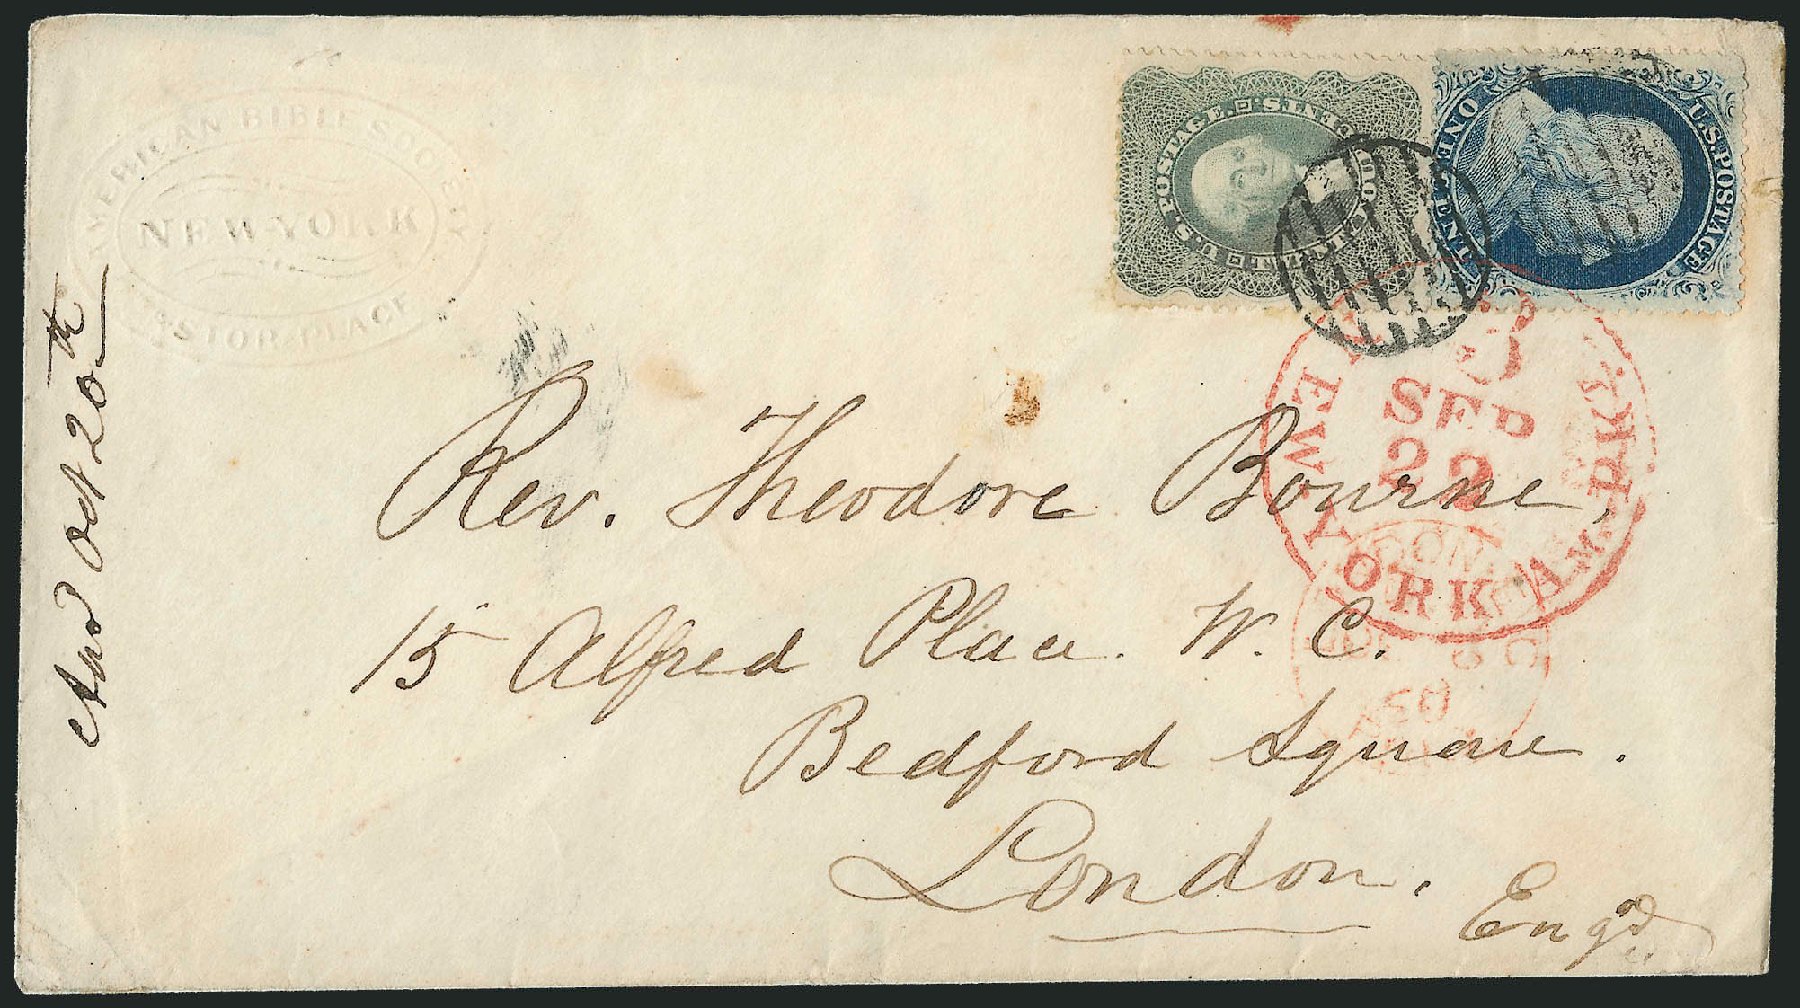 AMERICAN BIBLE SOCIETY
NEW-YORK
ASTOR-PLACE
U.S. POSTAGE.
TWENTY FOUR CENTS.
U.S. POSTAGE
ONE CENT
NEW-YORK AM. PKT.
3
SEP
22
Rev. Theodore Bourne,
15 Alfred Place. W. C.
Bedford Square.
London.
Engd.
Oct 20th